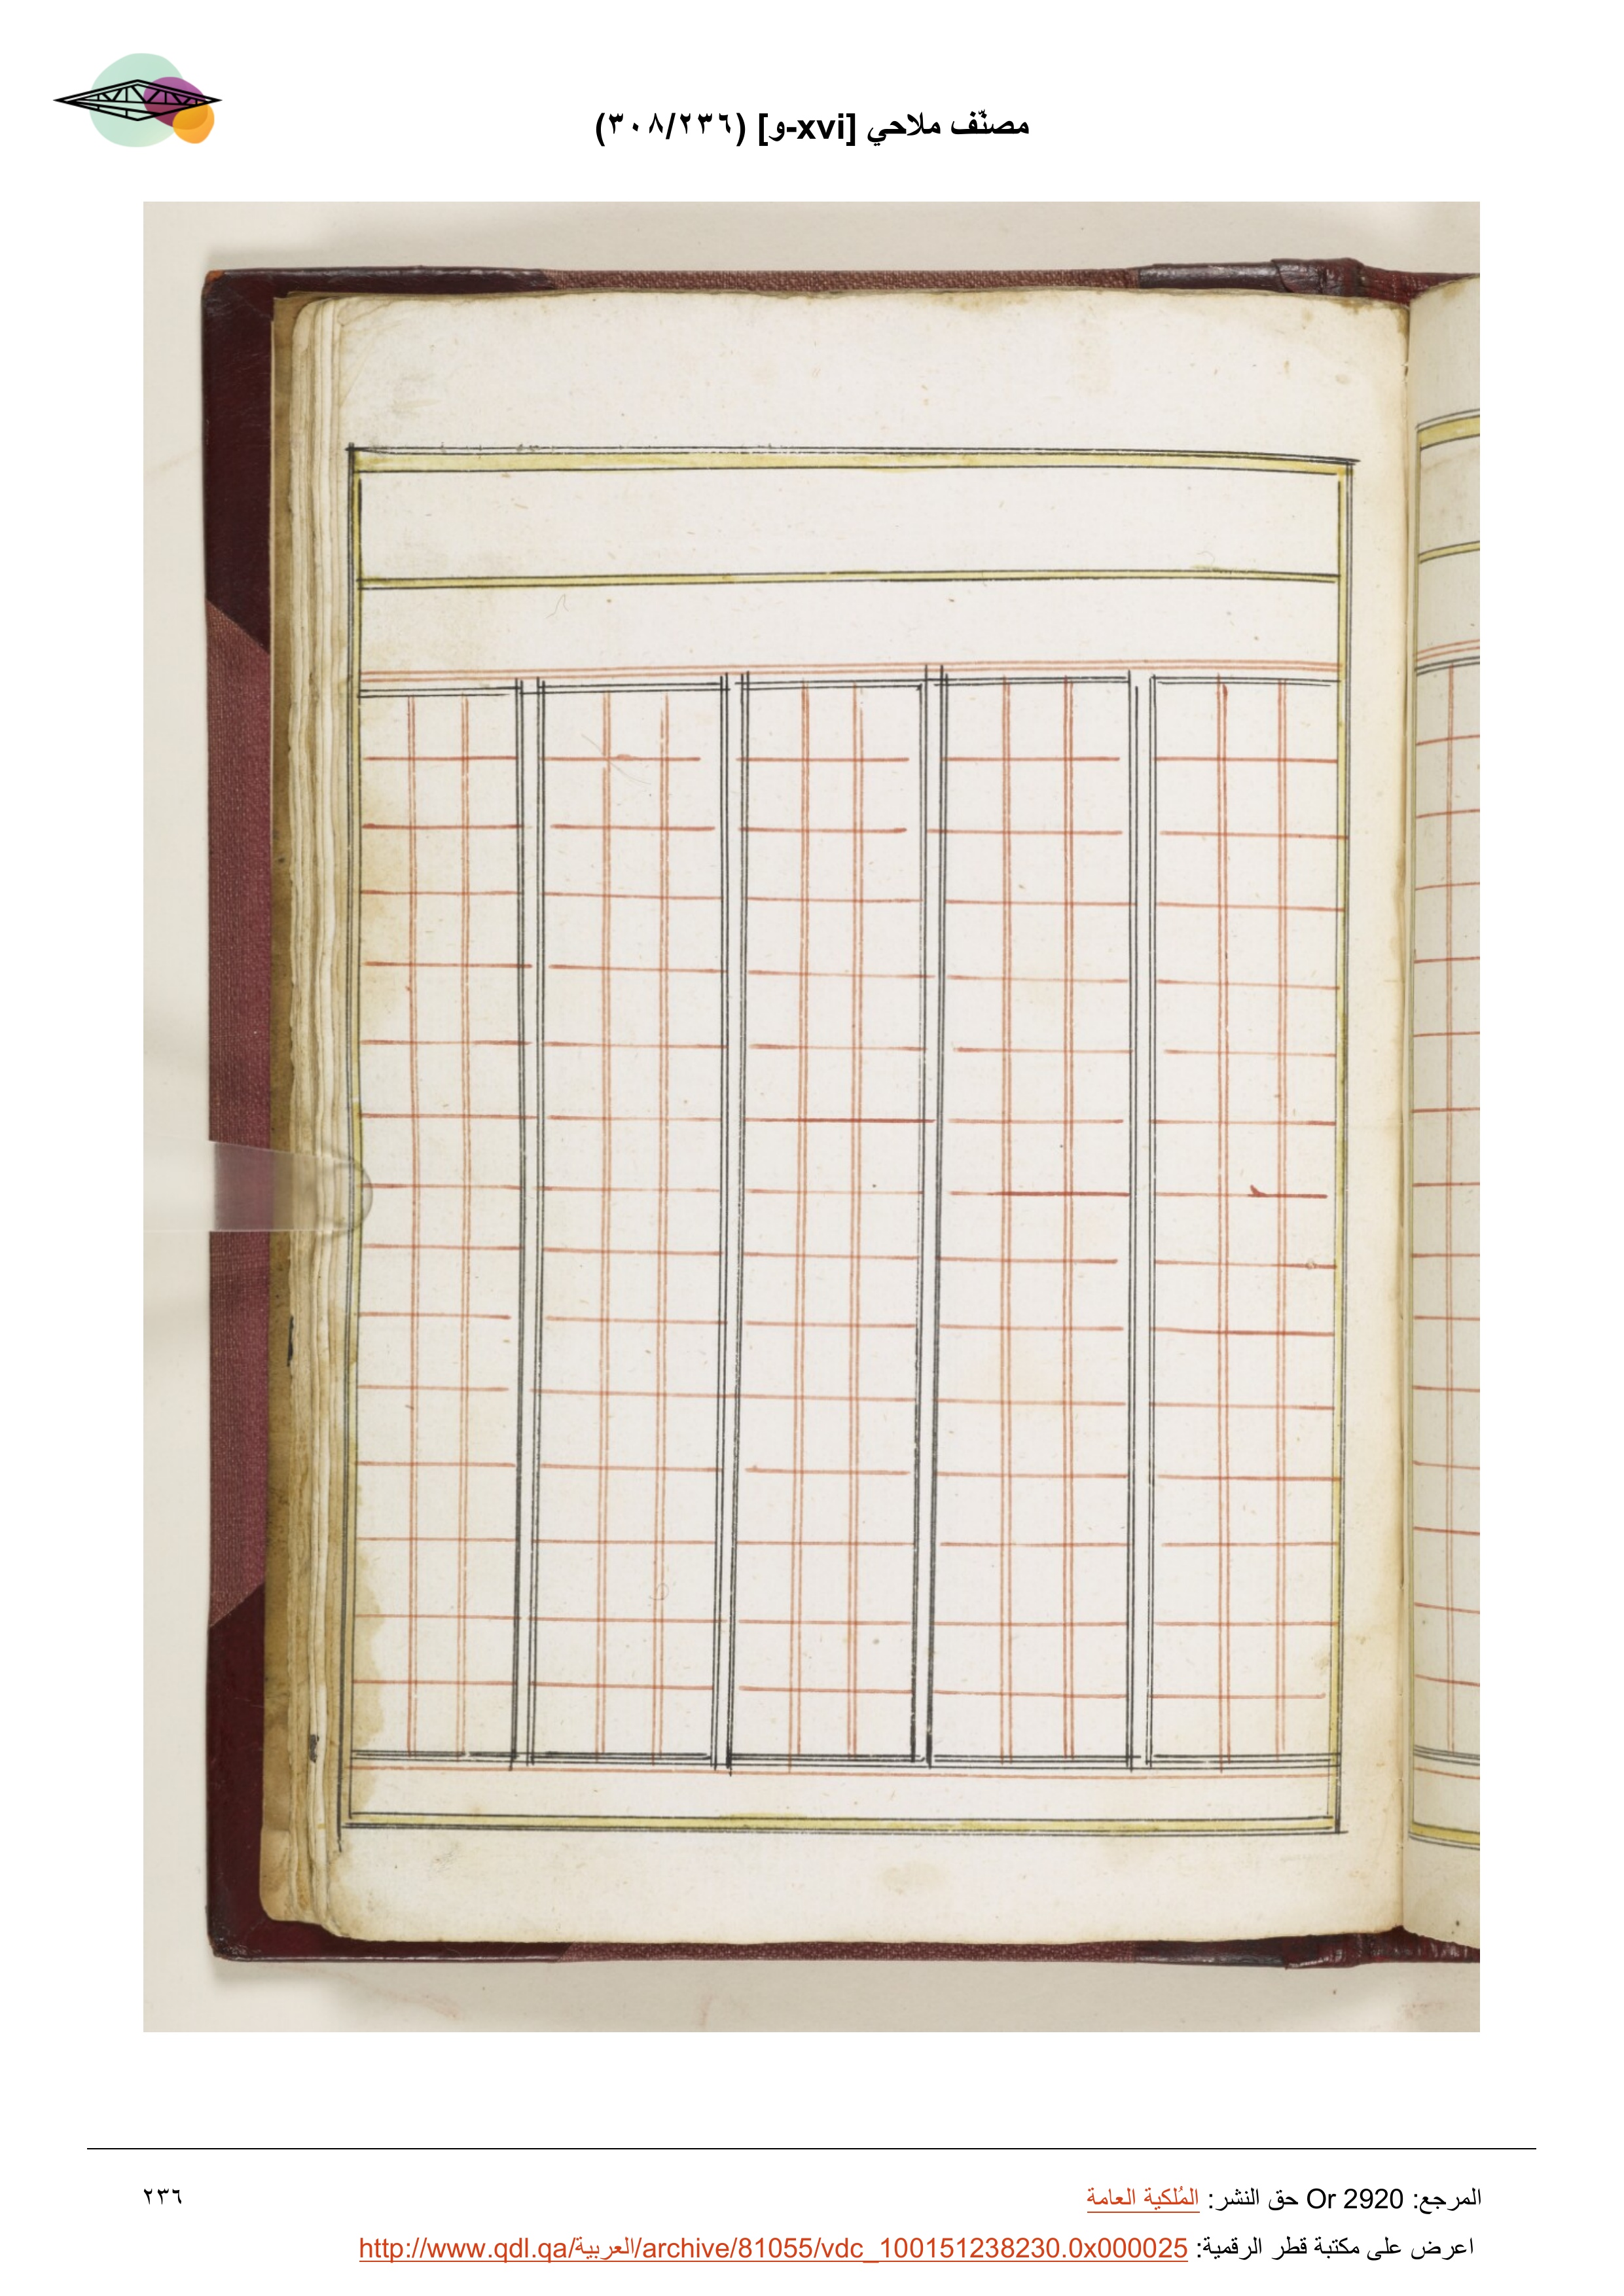 مصنّف ملاحي [xvi-و] (٣٠٨/٢٣٦)
المرجع: Or 2920 حق النشر: المُلكية العامة
٢٣٦
اعرض على مكتبة قطر الرقمية: http://www.qdl.qa/العربية/archive/81055/vdc_100151238230.0x000025